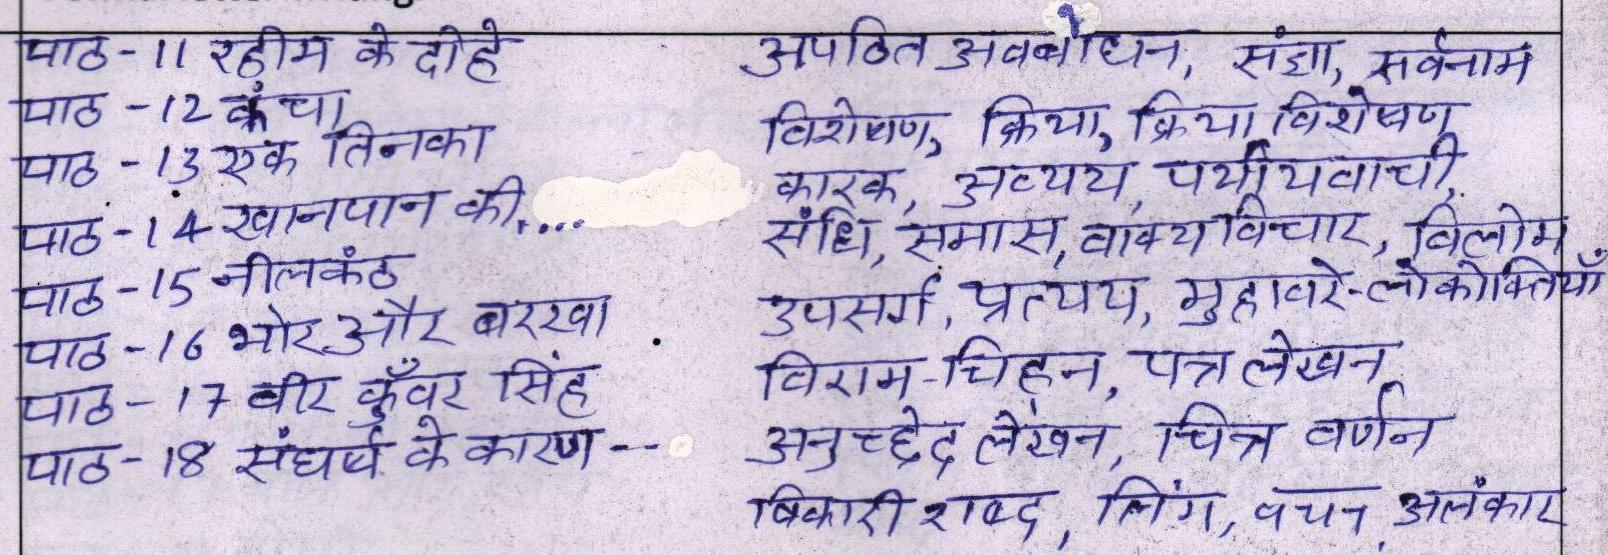 पाठ - 11 रहीम के दोहे
पाठ - 12 कंचा
पाठ - 13 एक तिनका
पाठ - 14 खानपान की....
पाठ - 15 नीलकंठ
पाठ - 16 भोर और बरखा
पाठ - 17 वीर कुँवर सिंह
पाठ - 18 संघर्ष के कारण --
अपठित अवबोधन, संज्ञा, सर्वनाम
विशेषण, क्रिया, क्रिया विशेषण
कारक, अव्यय, पर्यायवाची,
संधि, समास, वाक्य विचार, विलोम
उपसर्ग, प्रत्यय, मुहावरे-लोकोक्तियाँ
विराम-चिह्न, पत्र लेखन
अनुच्छेद लेखन, चित्र वर्णन
विकारी शब्द, लिंग, वचन, अलंकार